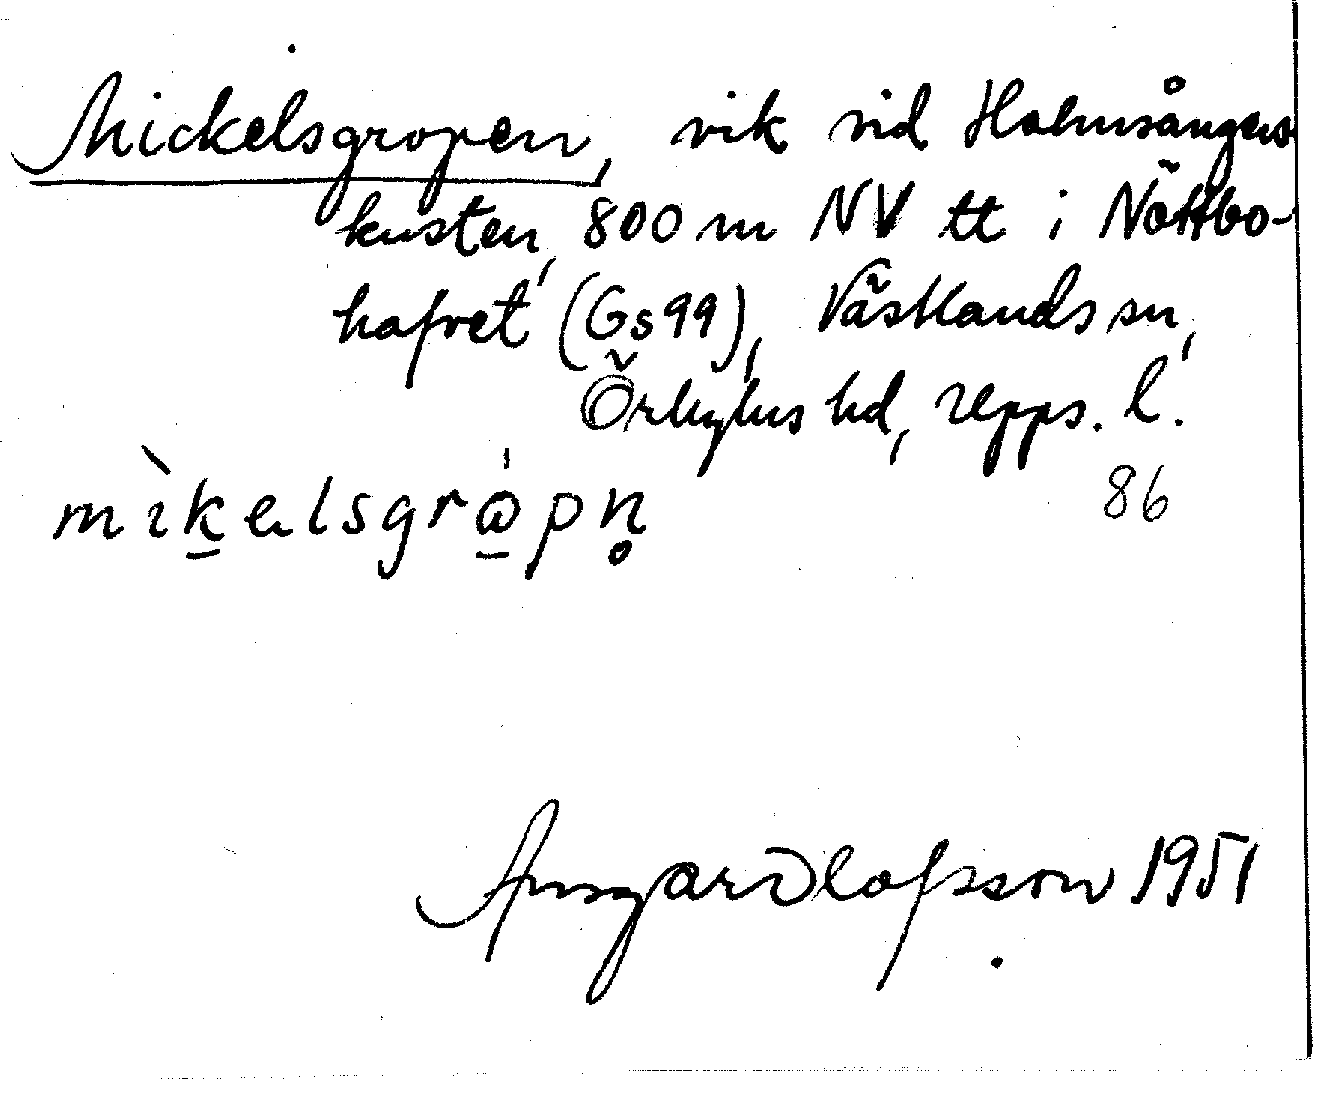 Mickelsgropen, vik vid Holmsångers
kusten, 800 m NV tt i Nöttbo-
hafvet (Gs 99), Västlands sn,
Örbyhus hd, Upps. l.
86
mìkelsgrɷpn̥
Ansgar Olofsson 1951